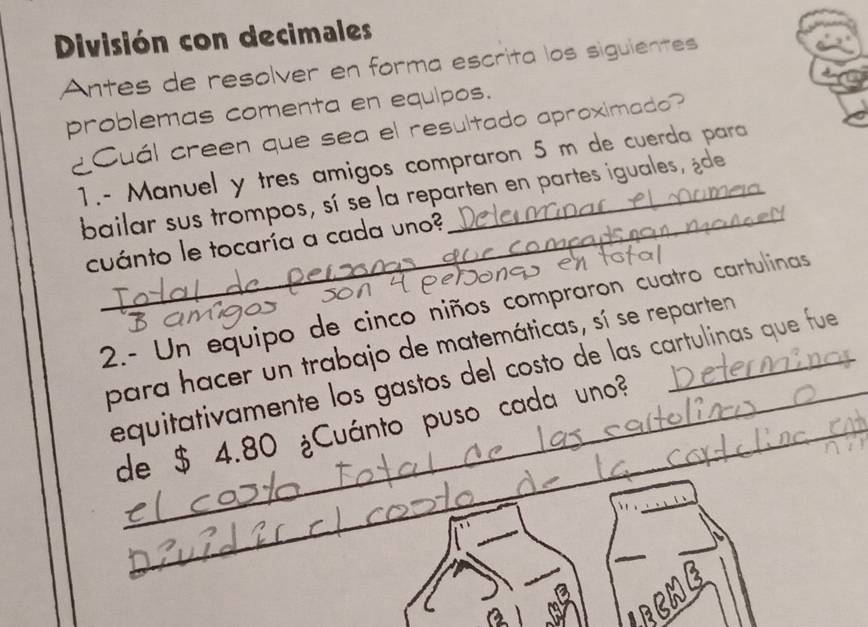 División con decimales
Antes de resolver en forma escrita los siguientes
problemas comenta en equipos.
¿Cuál creen que sea el resultado aproximado?
1.- Manuel y tres amigos compraron 5 m de cuerda para
bailar sus trompos, sí se la reparten en partes iguales, ¿de
cuánto le tocaría a cada uno? Determinar el numero
Total de personas que
3 amigos son 4 personas en total
2.- Un equipo de cinco niños compraron cuatro cartulinas
para hacer un trabajo de matemáticas, sí se reparten
equitativamente los gastos del costo de las cartulinas que fue
de $ 4.80 ¿Cuánto puso cada uno? Determinar
el costo total de las
Dividir el costo de la
LECHE